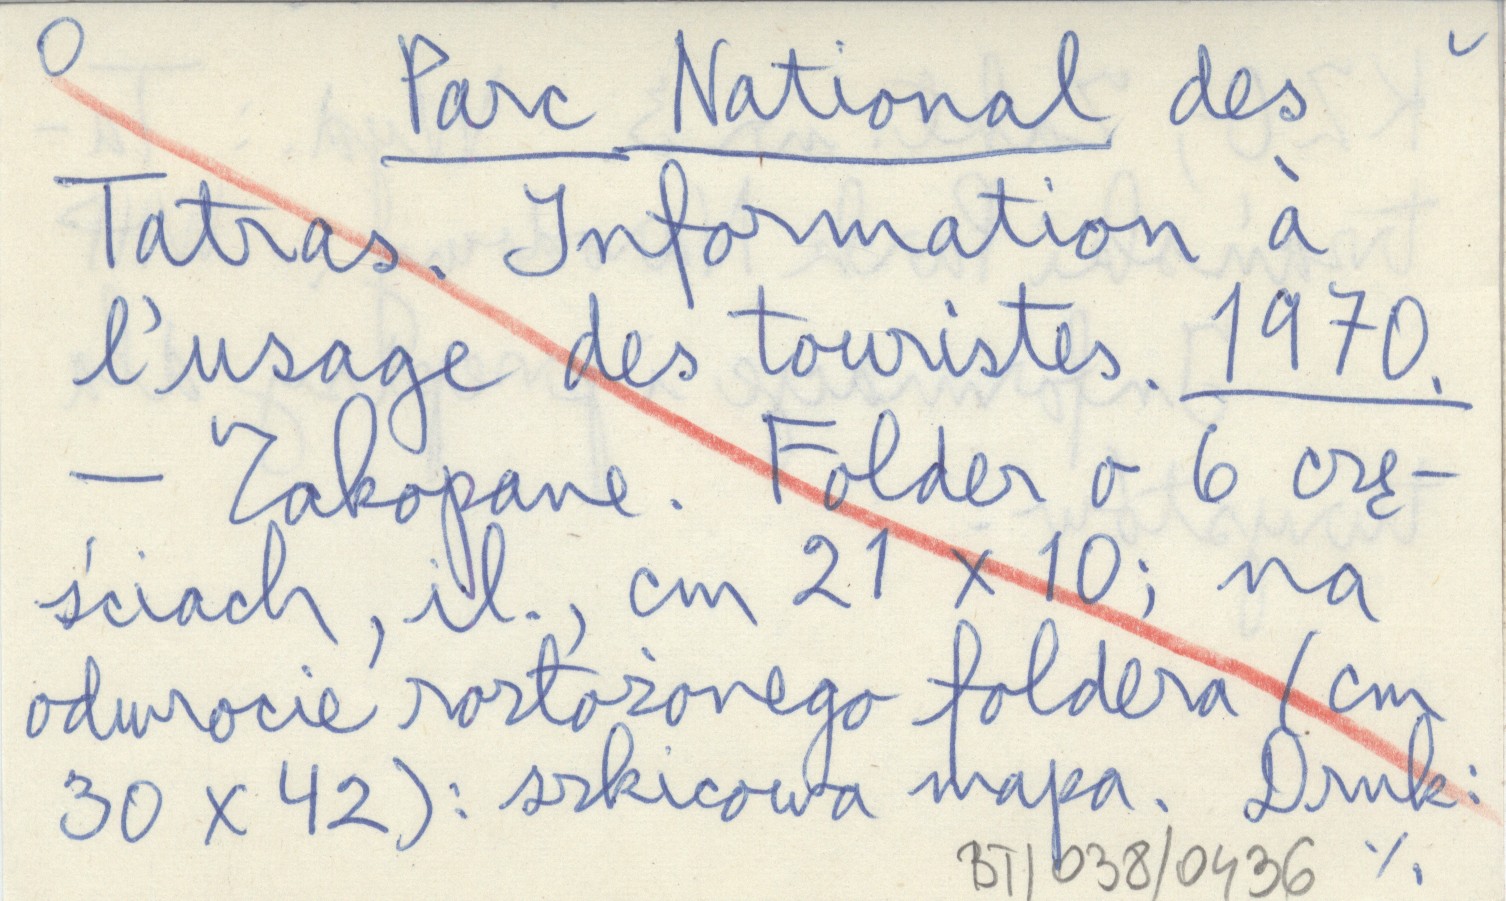 O Parc National des
Tatras. Information à
l'usage des touristes. 1970.
— Zakopane. Folder o 6 czę-
ściach, il., cm 21 x 10; na
odwrocie rozłożonego foldera (cm
30 x 42): szkicowa mapa. Druk:
BT/038/0436 ·/.